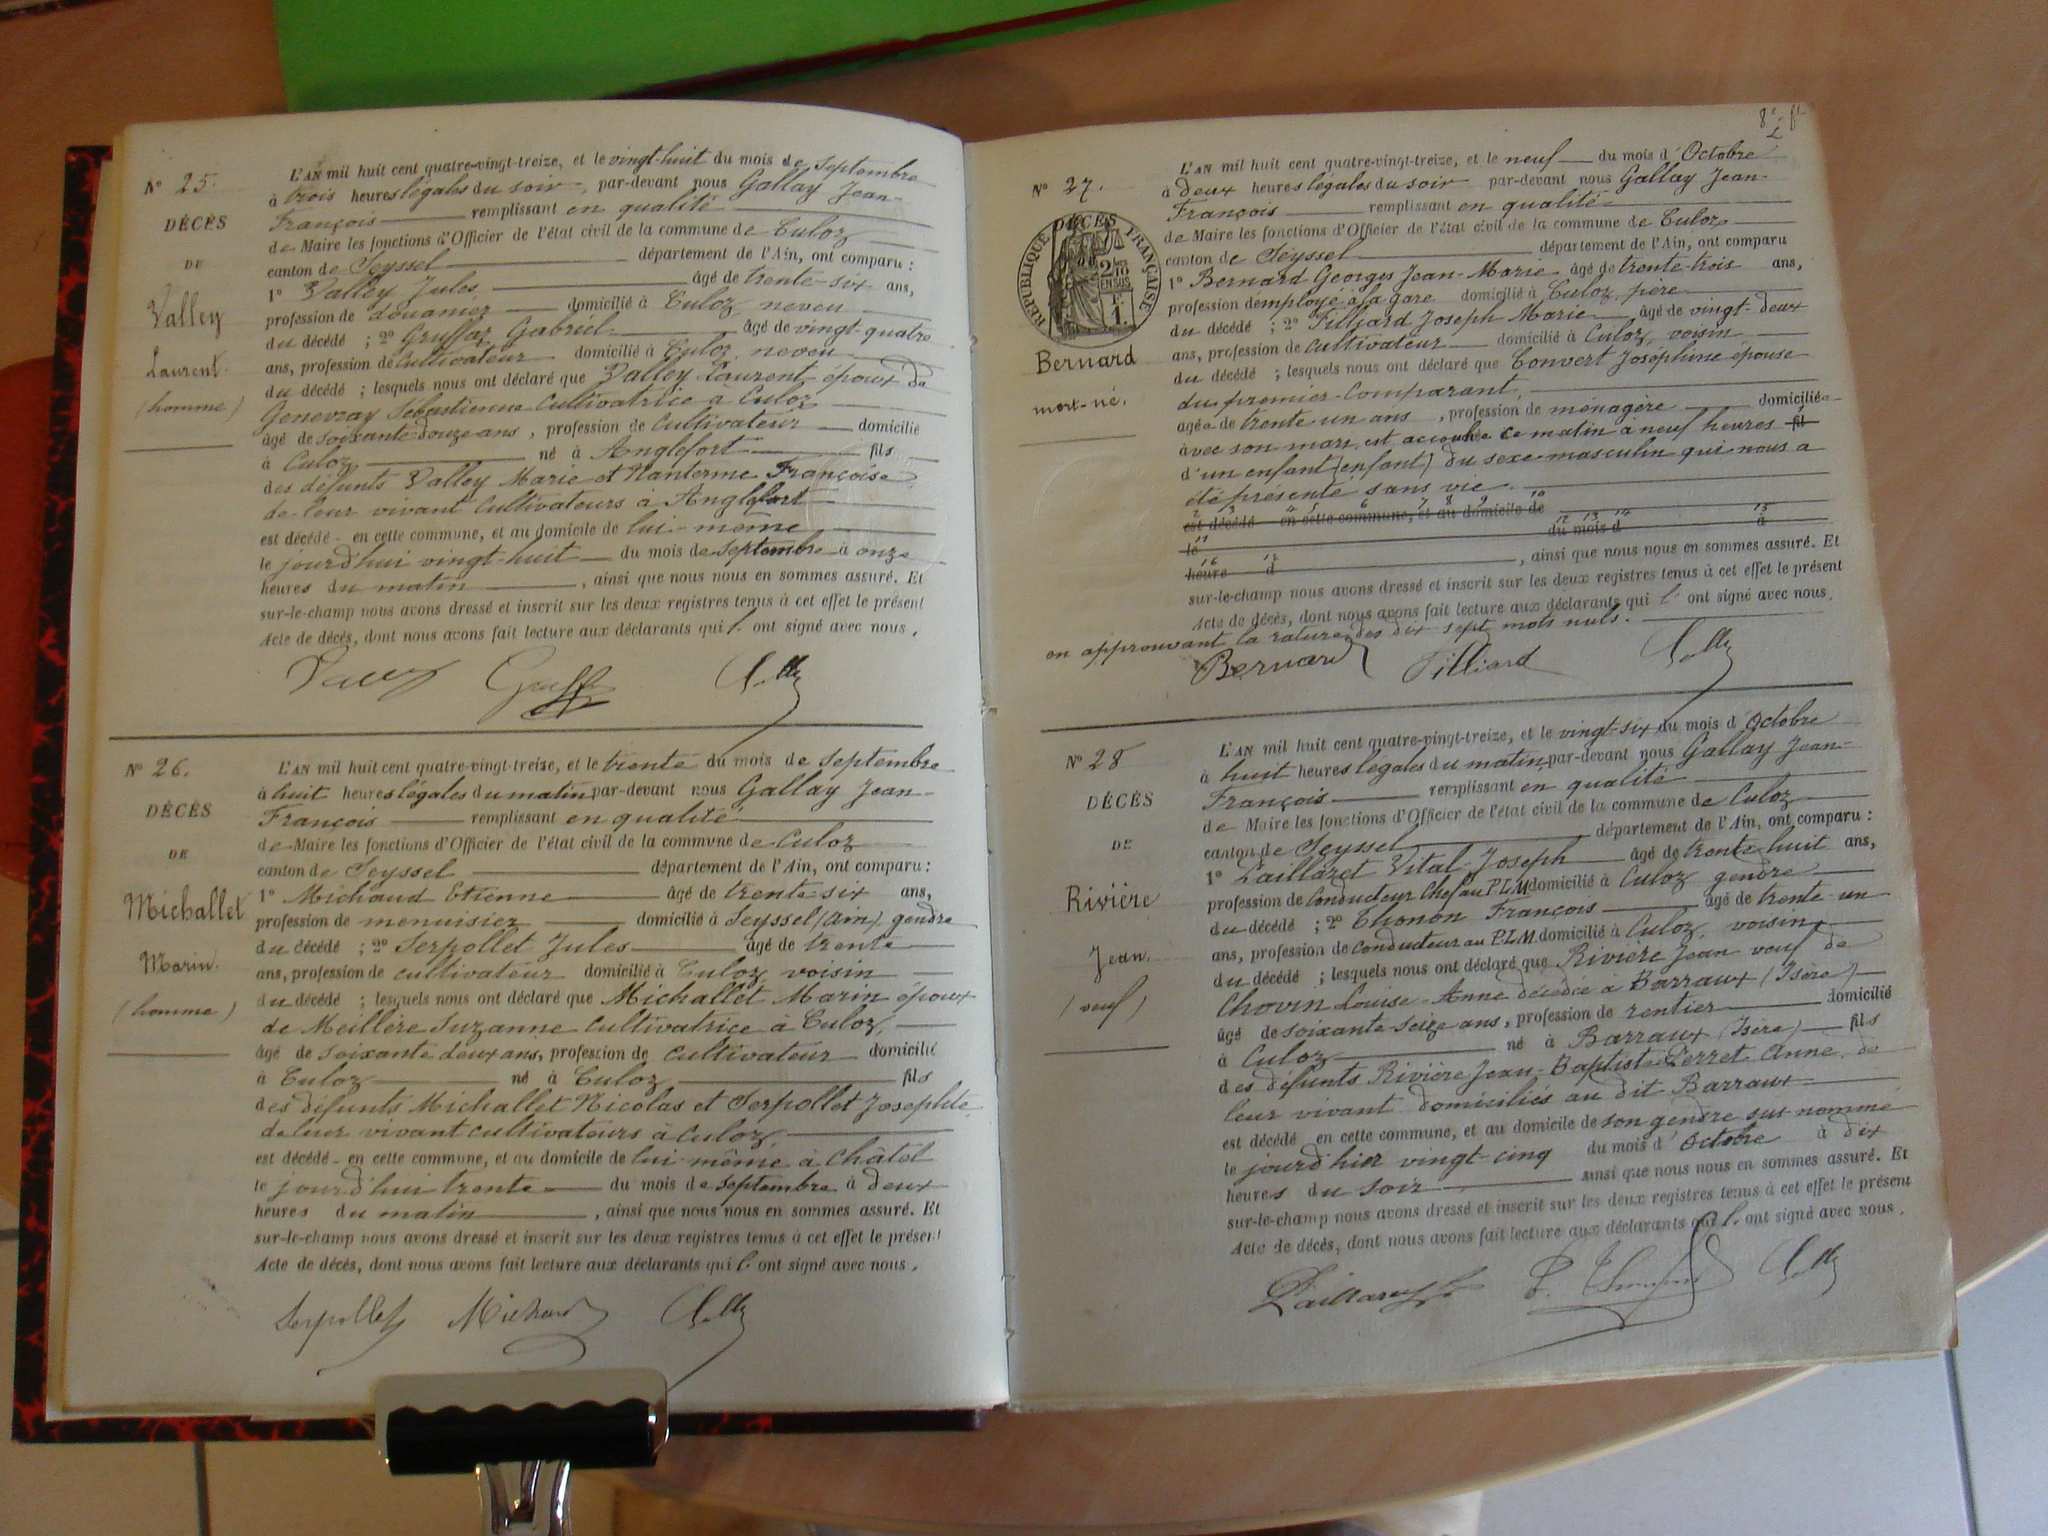 N° 25.
DÉCÈS
DE
Valley
Laurent.
(homme)
L'AN mil huit cent quatre-vingt-treize, et le vingt-huit du mois de Septembre
à trois heures légales du soir, par-devant nous Gallay Jean-
François remplissant en qualité
de Maire les fonctions d'Officier de l'état civil de la commune de Culoz
canton de Seyssel département de l'Ain, ont comparu :
1° Valley Jules âgé de trente-six ans,
profession de douanier domicilié à Culoz neveu
du décédé ; 2° Gruffaz Gabriel âgé de vingt-quatre
ans, profession de Cultivateur domicilié à Culoz, neveu
du décédé ; lesquels nous ont déclaré que Valley Laurent époux de
Genevray Sébastienne Cultivatrice à Culoz
âgé de soixante douze ans, profession de Cultivateur domicilié
à Culoz né à Anglefort fils
des défunts Valley Marie et Nanterme Françoise
de leur vivant Cultivateurs à Anglefort
est décédé en cette commune, et au domicile de lui-même
le jourd'hui vingt-huit du mois de Septembre à onze
heures du matin, ainsi que nous nous en sommes assuré. Et
sur-le-champ nous avons dressé et inscrit sur les deux registres tenus à cet effet le présent
Acte de décès, dont nous avons fait lecture aux déclarants qui l' ont signé avec nous.
N° 26.
DÉCÈS
DE
Michallet
Marin.
(homme)
L'AN mil huit cent quatre-vingt-treize, et le trente du mois de Septembre
à huit heures légales du matin par-devant nous Gallay Jean-
François remplissant en qualité
de Maire les fonctions d'Officier de l'état civil de la commune de Culoz
canton de Seyssel département de l'Ain, ont comparu :
1° Michaud Etienne âgé de trente-six ans,
profession de menuisier domicilié à Seyssel (Ain), gendre
du décédé ; 2° Serpollet Jules âgé de trente
ans, profession de cultivateur domicilié à Culoz, voisin
du décédé ; lesquels nous ont déclaré que Michallet Marin époux
de Meillère Suzanne Cultivatrice à Culoz,
âgé de soixante deux ans, profession de Cultivateur domicilié
à Culoz né à Culoz fils
des défunts Michallet Nicolas et Serpollet Josephte
de leur vivant cultivateurs à Culoz,
est décédé en cette commune, et au domicile de lui-même à Châtel
le jourd'hui trente du mois de Septembre à deux
heures du matin, ainsi que nous nous en sommes assuré. Et
sur-le-champ nous avons dressé et inscrit sur les deux registres tenus à cet effet le présent
Acte de décès, dont nous avons fait lecture aux déclarants qui l' ont signé avec nous.
Serpollet Michaud
N° 27.
DÉCÈS
RÉPUBLIQUE FRANÇAISE
Bernard
mort-né.
L'AN mil huit cent quatre-vingt-treize, et le neuf du mois d'Octobre
à deux heures légales du soir par-devant nous Gallay Jean-
François remplissant en qualité
de Maire les fonctions d'Officier de l'état civil de la commune de Culoz
canton de Seyssel département de l'Ain, ont comparu
1° Bernard Georges Jean-Marie âgé de trente-trois ans,
profession d'employé à la gare domicilié à Culoz, père
du décédé ; 2° Filliard Joseph Marie âgé de vingt-deux
ans, profession de cultivateur domicilié à Culoz, voisin
du décédé ; lesquels nous ont déclaré que Convert Joséphine épouse
du premier Comparant,
âgée de trente un ans, profession de ménagère domiciliée
avec son mari est accouchée ce matin à neuf heures fil
d'un enfant (enfant) du sexe masculin qui nous a
été présenté sans vie.
est décédé en cette commune, et au domicile de
le du mois d à
heure d, ainsi que nous nous en sommes assuré. Et
sur-le-champ nous avons dressé et inscrit sur les deux registres tenus à cet effet le présent
Acte de décès, dont nous avons fait lecture aux déclarants qui l' ont signé avec nous,
en approuvant la rature des dix sept mots nuls.
Bernard Filliard
N° 28
DÉCÈS
DE
Rivière
Jean.
(veuf)
L'AN mil huit cent quatre-vingt-treize, et le vingt-six du mois d'Octobre
à huit heures légales du matin par-devant nous Gallay Jean-
François remplissant en qualité
de Maire les fonctions d'Officier de l'état civil de la commune de Culoz
canton de Seyssel département de l'Ain, ont comparu :
1° Laillaret Vital Joseph âgé de trente huit ans,
profession de Conducteur Chef au P.L.M domicilié à Culoz gendre
du décédé ; 2° Thonon François âgé de trente-un
ans, profession de conducteur au P.L.M. domicilié à Culoz, voisin
du décédé ; lesquels nous ont déclaré que Rivière Jean veuf de
Chovin Louise-Anne décédée à Barraux (Isère)
âgé de soixante seize ans, profession de rentier domicilié
à Culoz né à Barraux (Isère) fils
des défunts Rivière Jean-Baptiste Perret Anne de
leur vivant domiciliés au dit Barraux
est décédé en cette commune, et au domicile de son gendre sus nommé
le jourd'hier vingt-cinq du mois d'Octobre à dix
heures du soir ainsi que nous nous en sommes assuré. Et
sur-le-champ nous avons dressé et inscrit sur les deux registres tenus à cet effet le présent
Acte de décès, dont nous avons fait lecture aux déclarants qui l' ont signé avec nous.